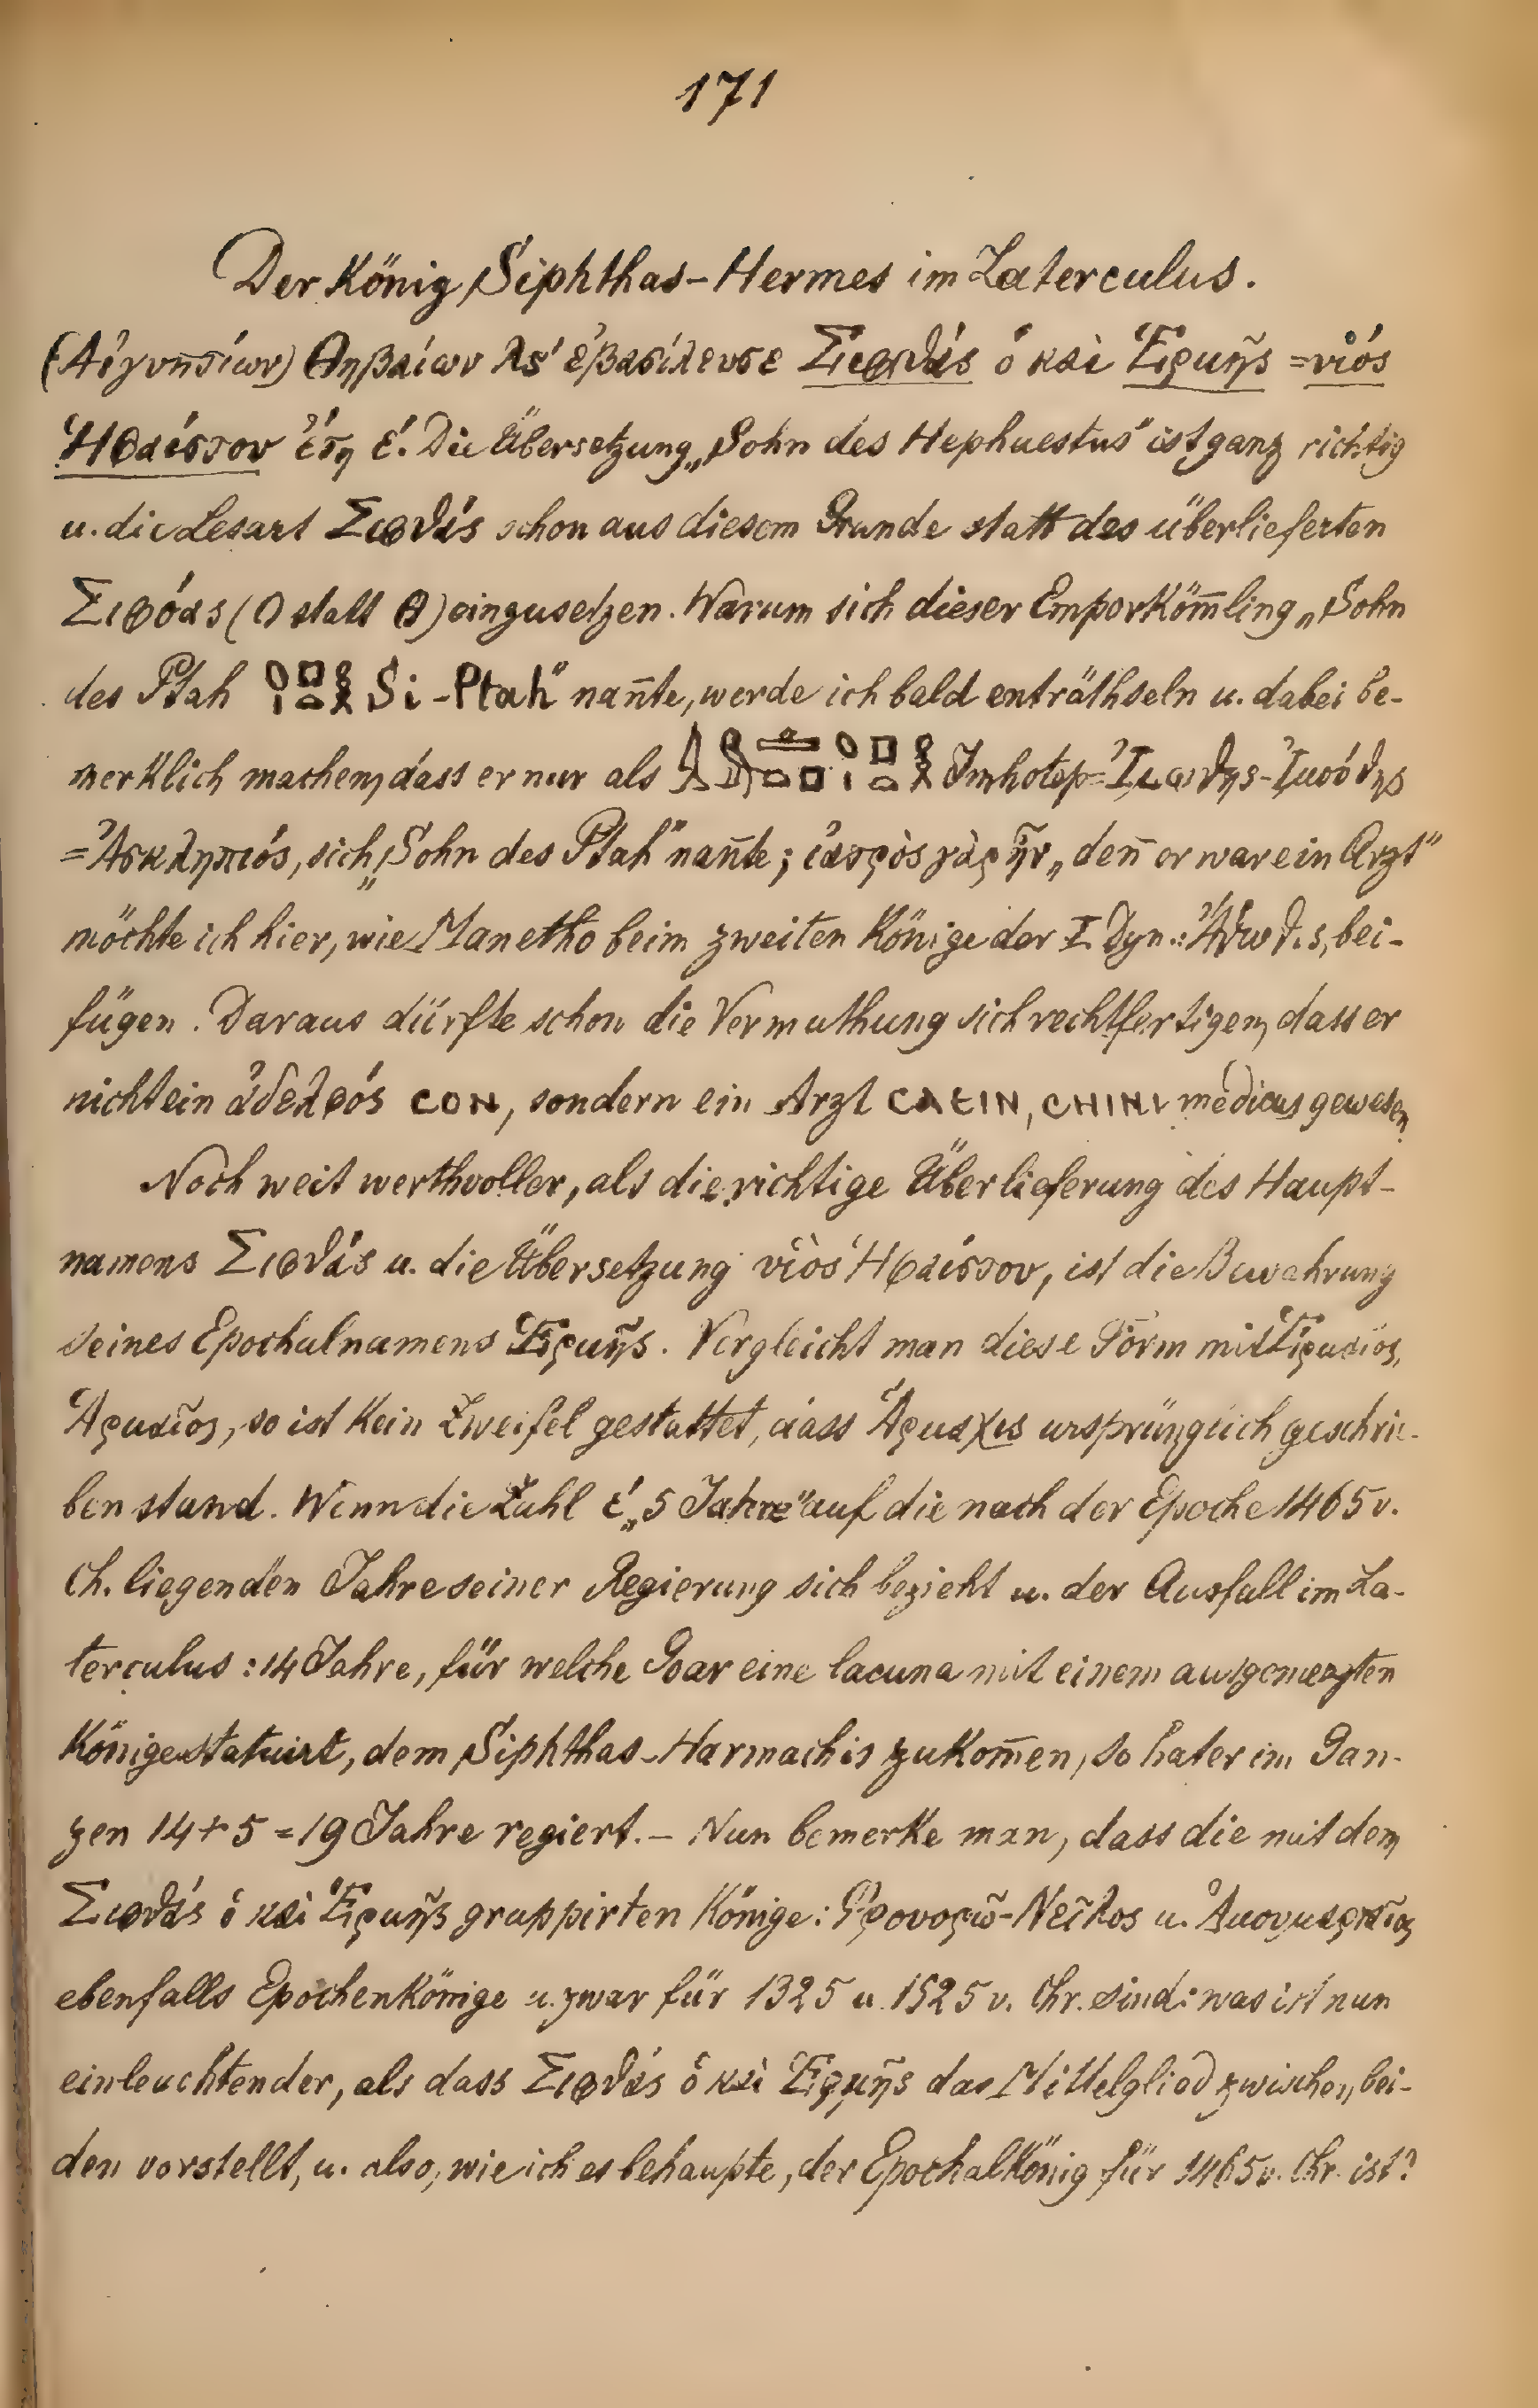 171
Der König Siphthas-Hermes im Laterculus.
(Αἰγυπτίων) Θηβαίων λϛ' ἐβασίλευσε Σιφθὰς ὁ καὶ Ἑρμῆς = υἱὸς
Ἡφαίστου ἔτη έ. Die Übersetzung „Sohn des Hephaestus" ist ganz richtig
u. die Lesart Σιφθάς schon aus diesem Grunde statt des überlieferten
Σιφόας (Ο statt Θ) einzusetzen. Warum sich dieser Emporköm̄ling „Sohn
des Ptah Si-Ptah" nan̄te, werde ich bald enträthseln u. dabei be-
merklich machen, dass er nur als Imhotep = Ἰμώθης-Ἰμούθης
= Ἀσκληπιός, sich „Sohn des Ptah" nan̄te; ἰατρὸς γὰρ ἦν „den̄ er war ein Arzt"
möchte ich hier, wie Manetho beim zweiten Könige der I. Dyn.: Ἄθωθις, bei-
fügen. Daraus dürfte schon die Vermuthung sich rechtfertigen, dass er
nicht ein ἀδελφός ⲤⲞⲚ, sondern ein Arzt ⲤⲀⲈⲒⲚ, ⲤⲎⲒⲚⲒ medicus gewesen.
Noch weit werthvoller, als die richtige Überlieferung des Haupt-
namens Σιφθάς u. die Übersetzung υἱὸς Ἡφαίστου, ist die Bewahrung
seines Epochalnamens Ἑρμῆς. Vergleicht man diese Form mit Ἑρμαῖος,
Ἁρμαῖος, so ist kein Zweifel gestattet, dass Ἅρμαχις ursprünglich geschrie-
ben stand. Wenn die Zahl έ „5 Jahre" auf die nach der Epoche 1465 v.
Ch. liegenden Jahre seiner Regierung sich bezieht u. der Ausfall im La-
terculus: 14 Jahre, für welche Goar eine lacuna mit einem ausgemerzten
Könige statuirt, dem Siphthas-Harmachis zukom̄en, so hat er im Gan-
zen 14 + 5 = 19 Jahre regiert. – Nun bemerke man, dass die mit dem
Σιφθάς ὁ καὶ Ἑρμῆς gruppirten Könige: Φρουορῶ-Νεῖλος u. Ἀμουμαρταῖος
ebenfalls Epochenkönige u. zwar für 1325 u. 1525 v. Chr. sind: was ist nun
einleuchtender, als dass Σιφθάς ὁ καὶ Ἑρμῆς das Mittelglied zwischen bei-
den vorstellt, u. also, wie ich es behaupte, der Epochalkönig für 1465 v. Chr. ist?